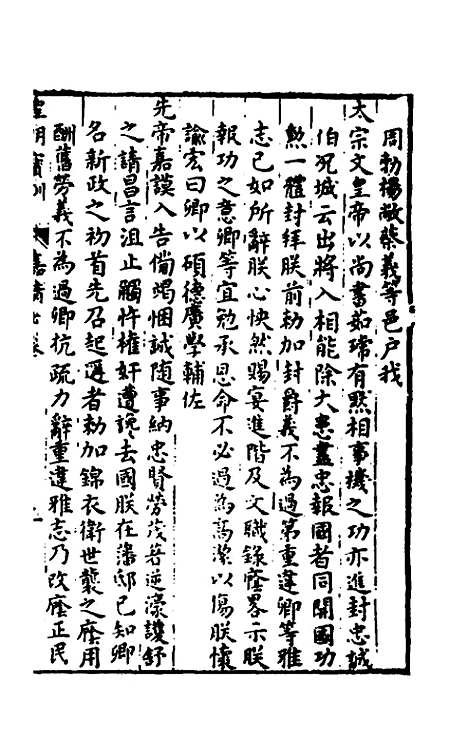 周勃楊敞蔡義等邑戶我
太宗文皇帝以尚書茹瑺有默相事機之功亦進封忠誠
伯況城云出將入相能除大患盡忠報國者同開國功
勲一體封拜朕前勅加封爵義不為過第重違卿等雅
志已如所辭朕心怏然賜宴進階及文職錄廕畧示朕
報功之意卿等宜勉承恩命不必過為高潔以傷朕懷
諭宏曰卿以碩德廣學輔佐
先帝嘉謨入告備竭悃誠随事納忠賢勞茂著逆濠護
之請昌言沮止觸忤權奸遭讒去國朕在藩邸已知卿
名新政之初首先召起遲者勅加錦衣衛世襲之廕用
酬舊勞義不為過卿抗疏力辭重違雅志乃改廕正民
皇明寶訓 嘉靖 卷